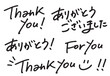 Thank you!
ありがとうございました
ありがとう!
For You
Thank you!!